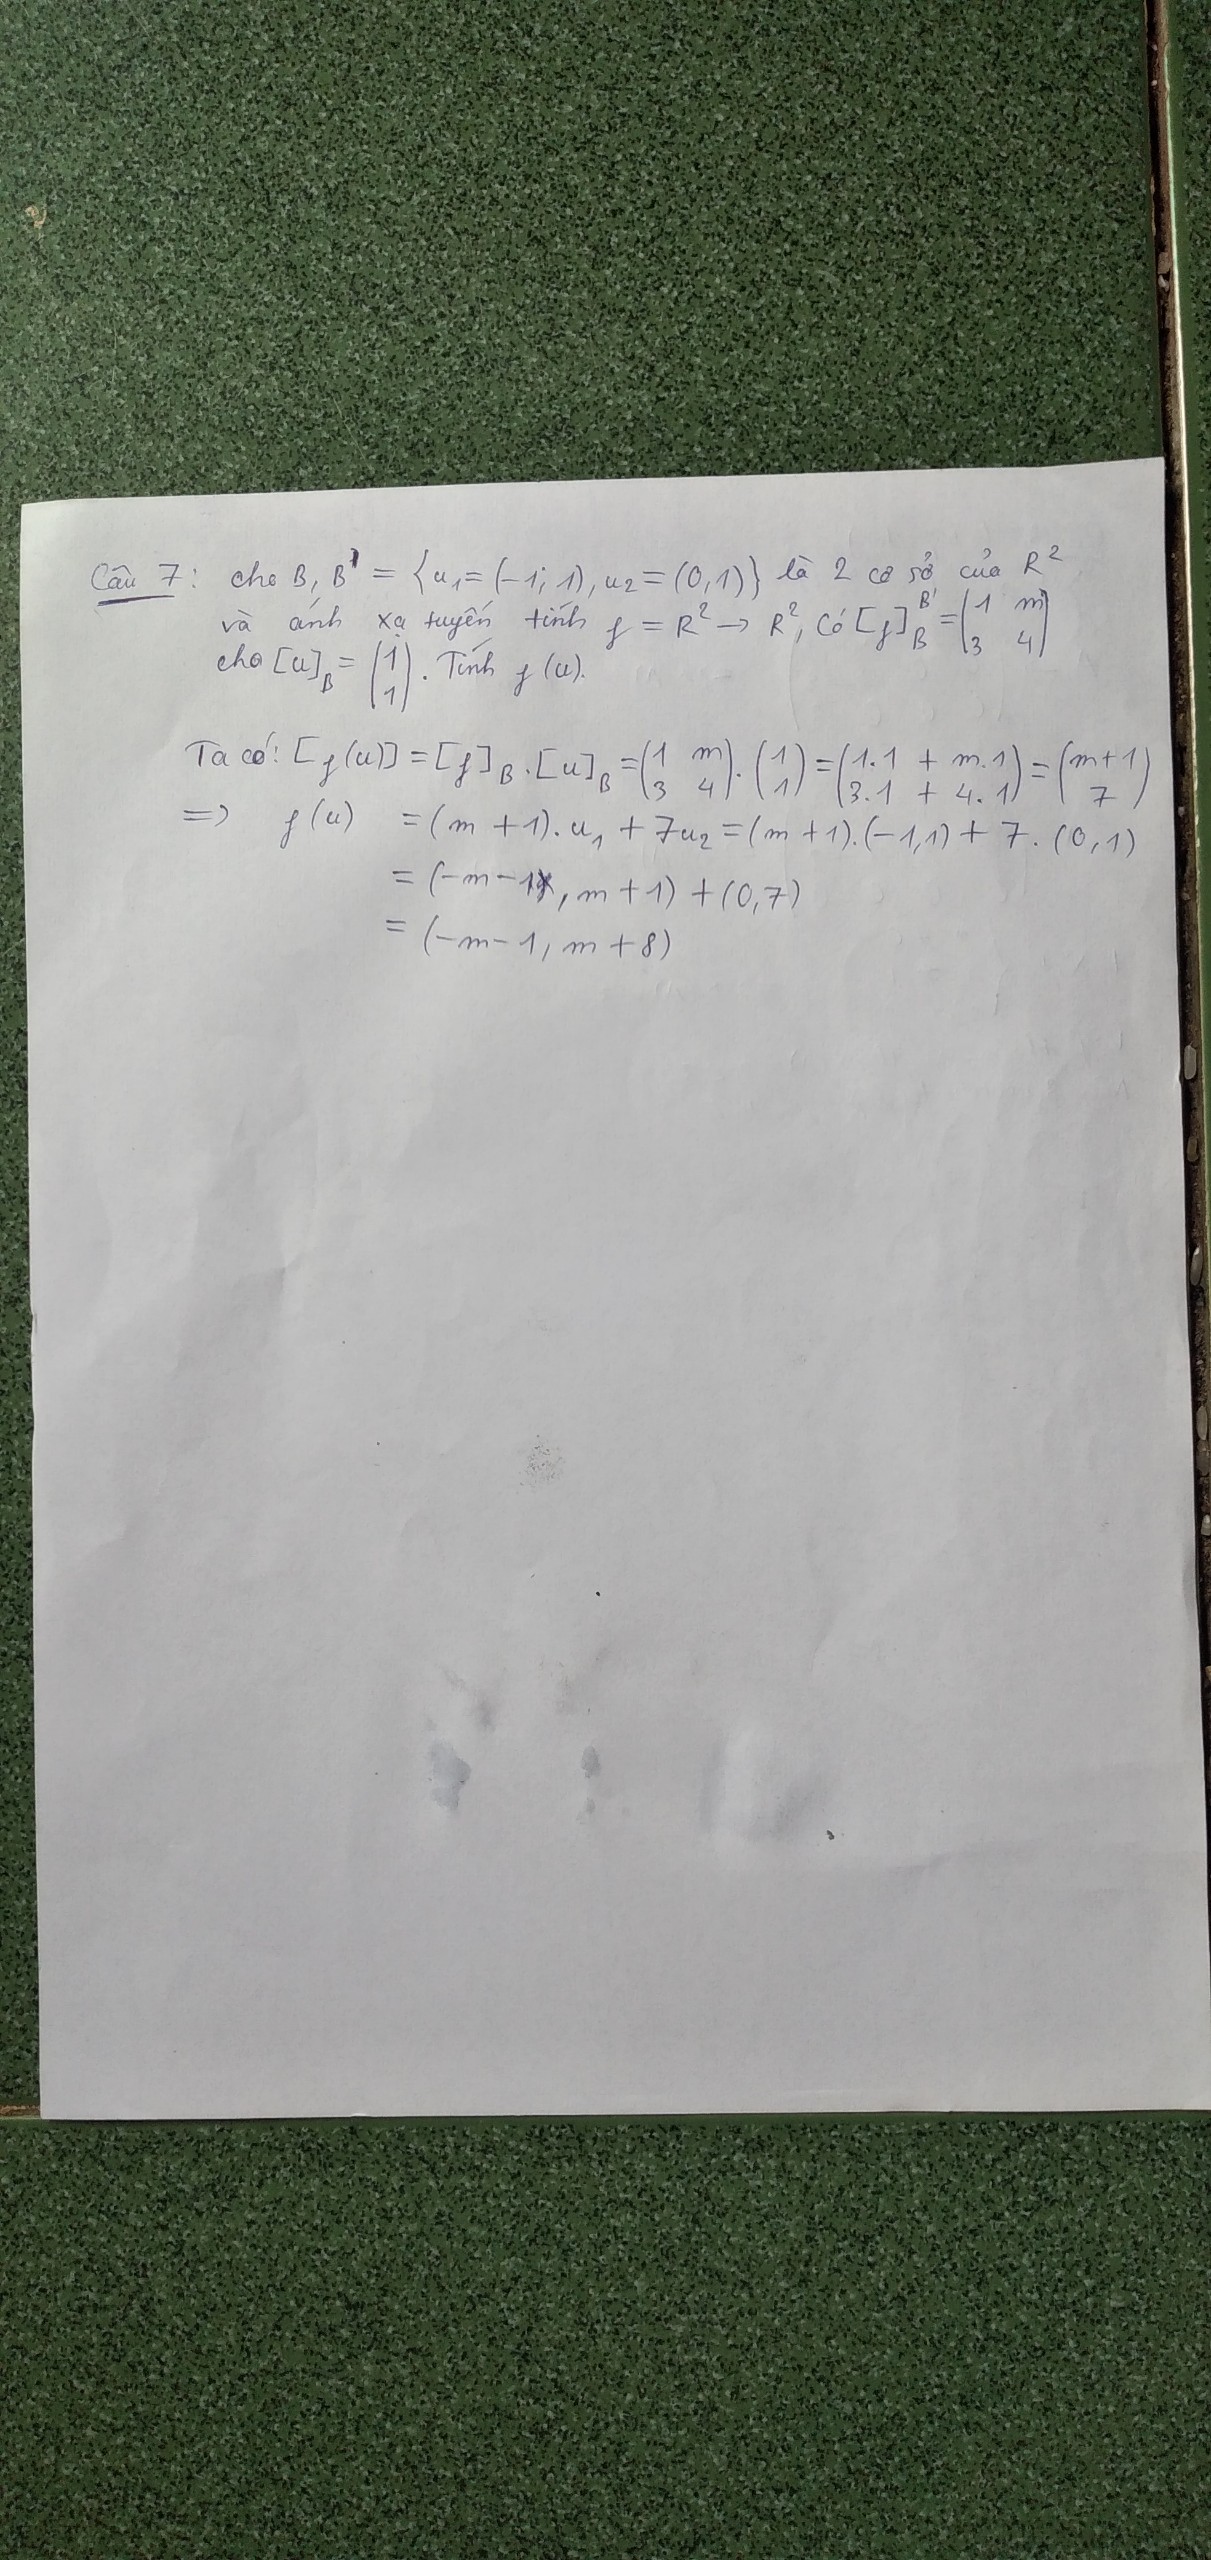 Câu 7: cho B, B' = {u₁=(-1; 1), u₂=(0,1)} là 2 cơ sở của R²
và ánh xạ tuyến tính f = R² → R², có [f]_B^B' = (1 m; 3 4)
cho [u]_B = (1; 1). Tính f(u).
Ta có: [f(u)] = [f]_B . [u]_B = (1 m; 3 4) . (1; 1) = (1.1 + m.1; 3.1 + 4.1) = (m+1; 7)
=> f(u) = (m+1). u₁ + 7u₂ = (m+1).(-1,1) + 7. (0,1)
= (-m-1, m+1) + (0,7)
= (-m-1, m+8)